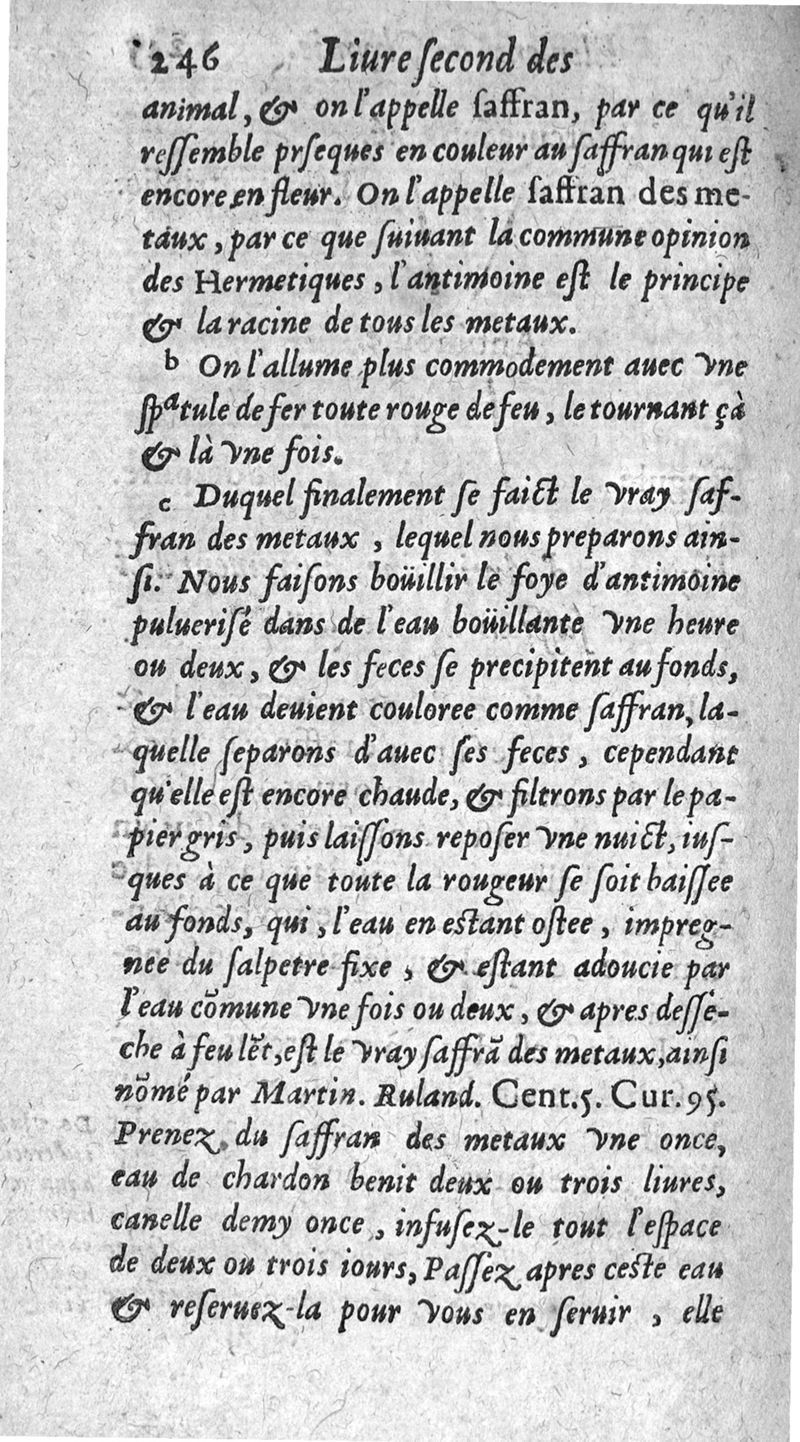 246 Liure ſecond des
animal, & on l'appelle ſaffran, par ce qu'il
reſſemble prſeques en couleur au ſaffran qui eſt
encore en fleur. On l'appelle ſaffran des me-
taux, par ce que ſuiuant la commune opinion
des Hermetiques, l'antimoine eſt le principe
& la racine de tous les metaux.
b On l'allume plus commodement auec vne
ſpatule de fer toute rouge de feu, le tournant çà
& là vne fois.
c Duquel finalement ſe faict le vray ſaf-
fran des metaux, lequel nous preparons ain-
ſi. Nous faiſons boüillir le foye d'antimoine
pulueriſé dans de l'eau boüillante vne heure
ou deux, & les feces ſe precipitent au fonds,
& l'eau deuient couloree comme ſaffran, la-
quelle ſeparons d'auec ſes feces, cependant
qu'elle eſt encore chaude, & filtrons par le pa-
pier gris, puis laiſſons repoſer vne nuict, iuſ-
ques à ce que toute la rougeur ſe ſoit baiſſee
au fonds, qui, l'eau en eſtant oſtee, impreg-
nee du ſalpetre fixe, & eſtant adoucie par
l'eau cõmune vne fois ou deux, & apres deſſe-
che à feu lẽt, eſt le vray ſaffrã des metaux, ainſi
nõmé par Martin. Ruland. Cent. 5. Cur. 95.
Prenez du ſaffran des metaux vne once,
eau de chardon benit deux ou trois liures,
canelle demy once, infuſez-le tout l'eſpace
de deux ou trois iours, Paſſez apres ceſte eau
& reſeruez-la pour vous en ſeruir, elle